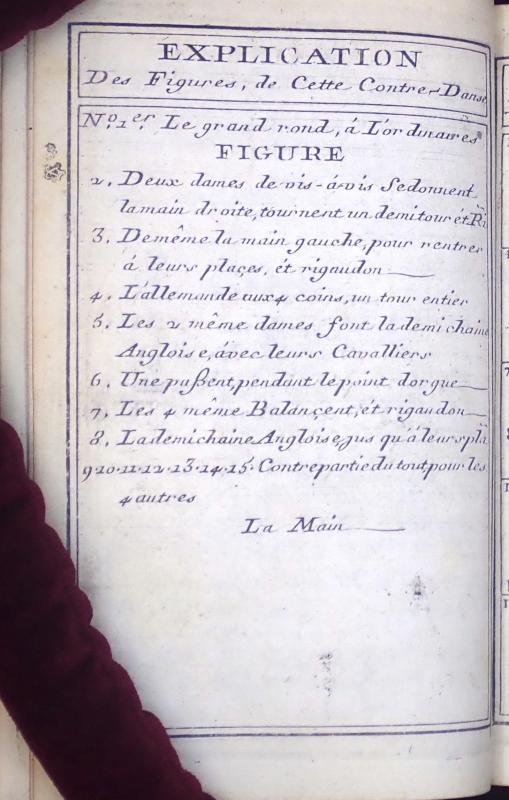 EXPLICATION
Des Figures, de Cette Contre-Danse
N.º 1.er Le grand rond, á L'ordinaires
FIGURE
2, Deux dames de vis-á-vis Sedonnent
lamain droite, tournent un demi tour ét Ri
3, Demême la main gauche, pour rentrer
á leurs plaçes, ét rigaudon
4, L'allemande aux 4 coins, un tour entier
5, Les 2 même dames font la demi chaine
Angloise, ávec leurs Cavalliers
6, Une paßent, pendant le point dorgue
7, Les 4 même Balançent, ét rigaudon
8, La demi chaine Angloise, jus qu'á leurs pla
9·10·11·12·13·14·15· Contre partie du tout, pour les
4 autres
La Main